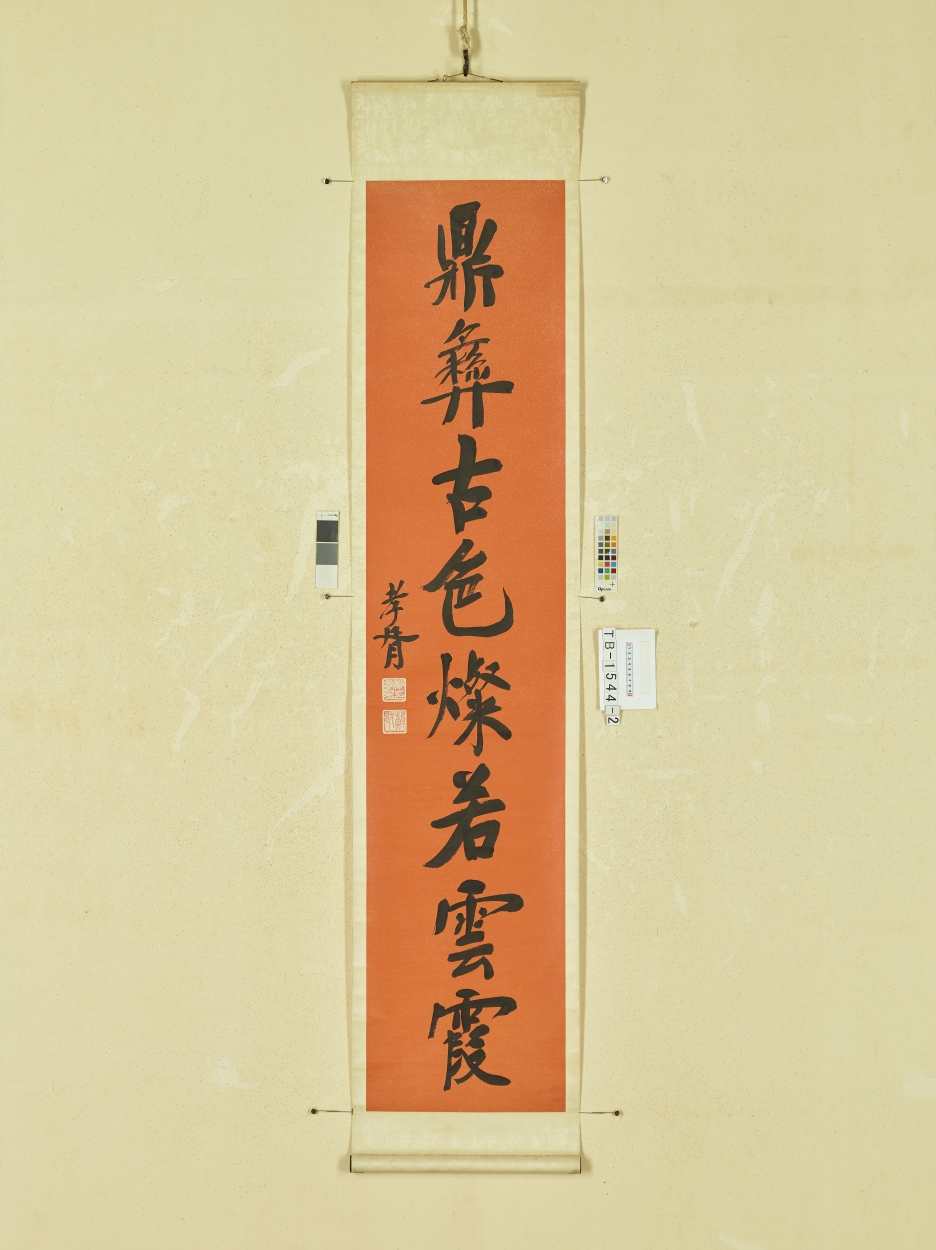 鼎彝古色燦若雲霞
孝胥
TB-1544-2